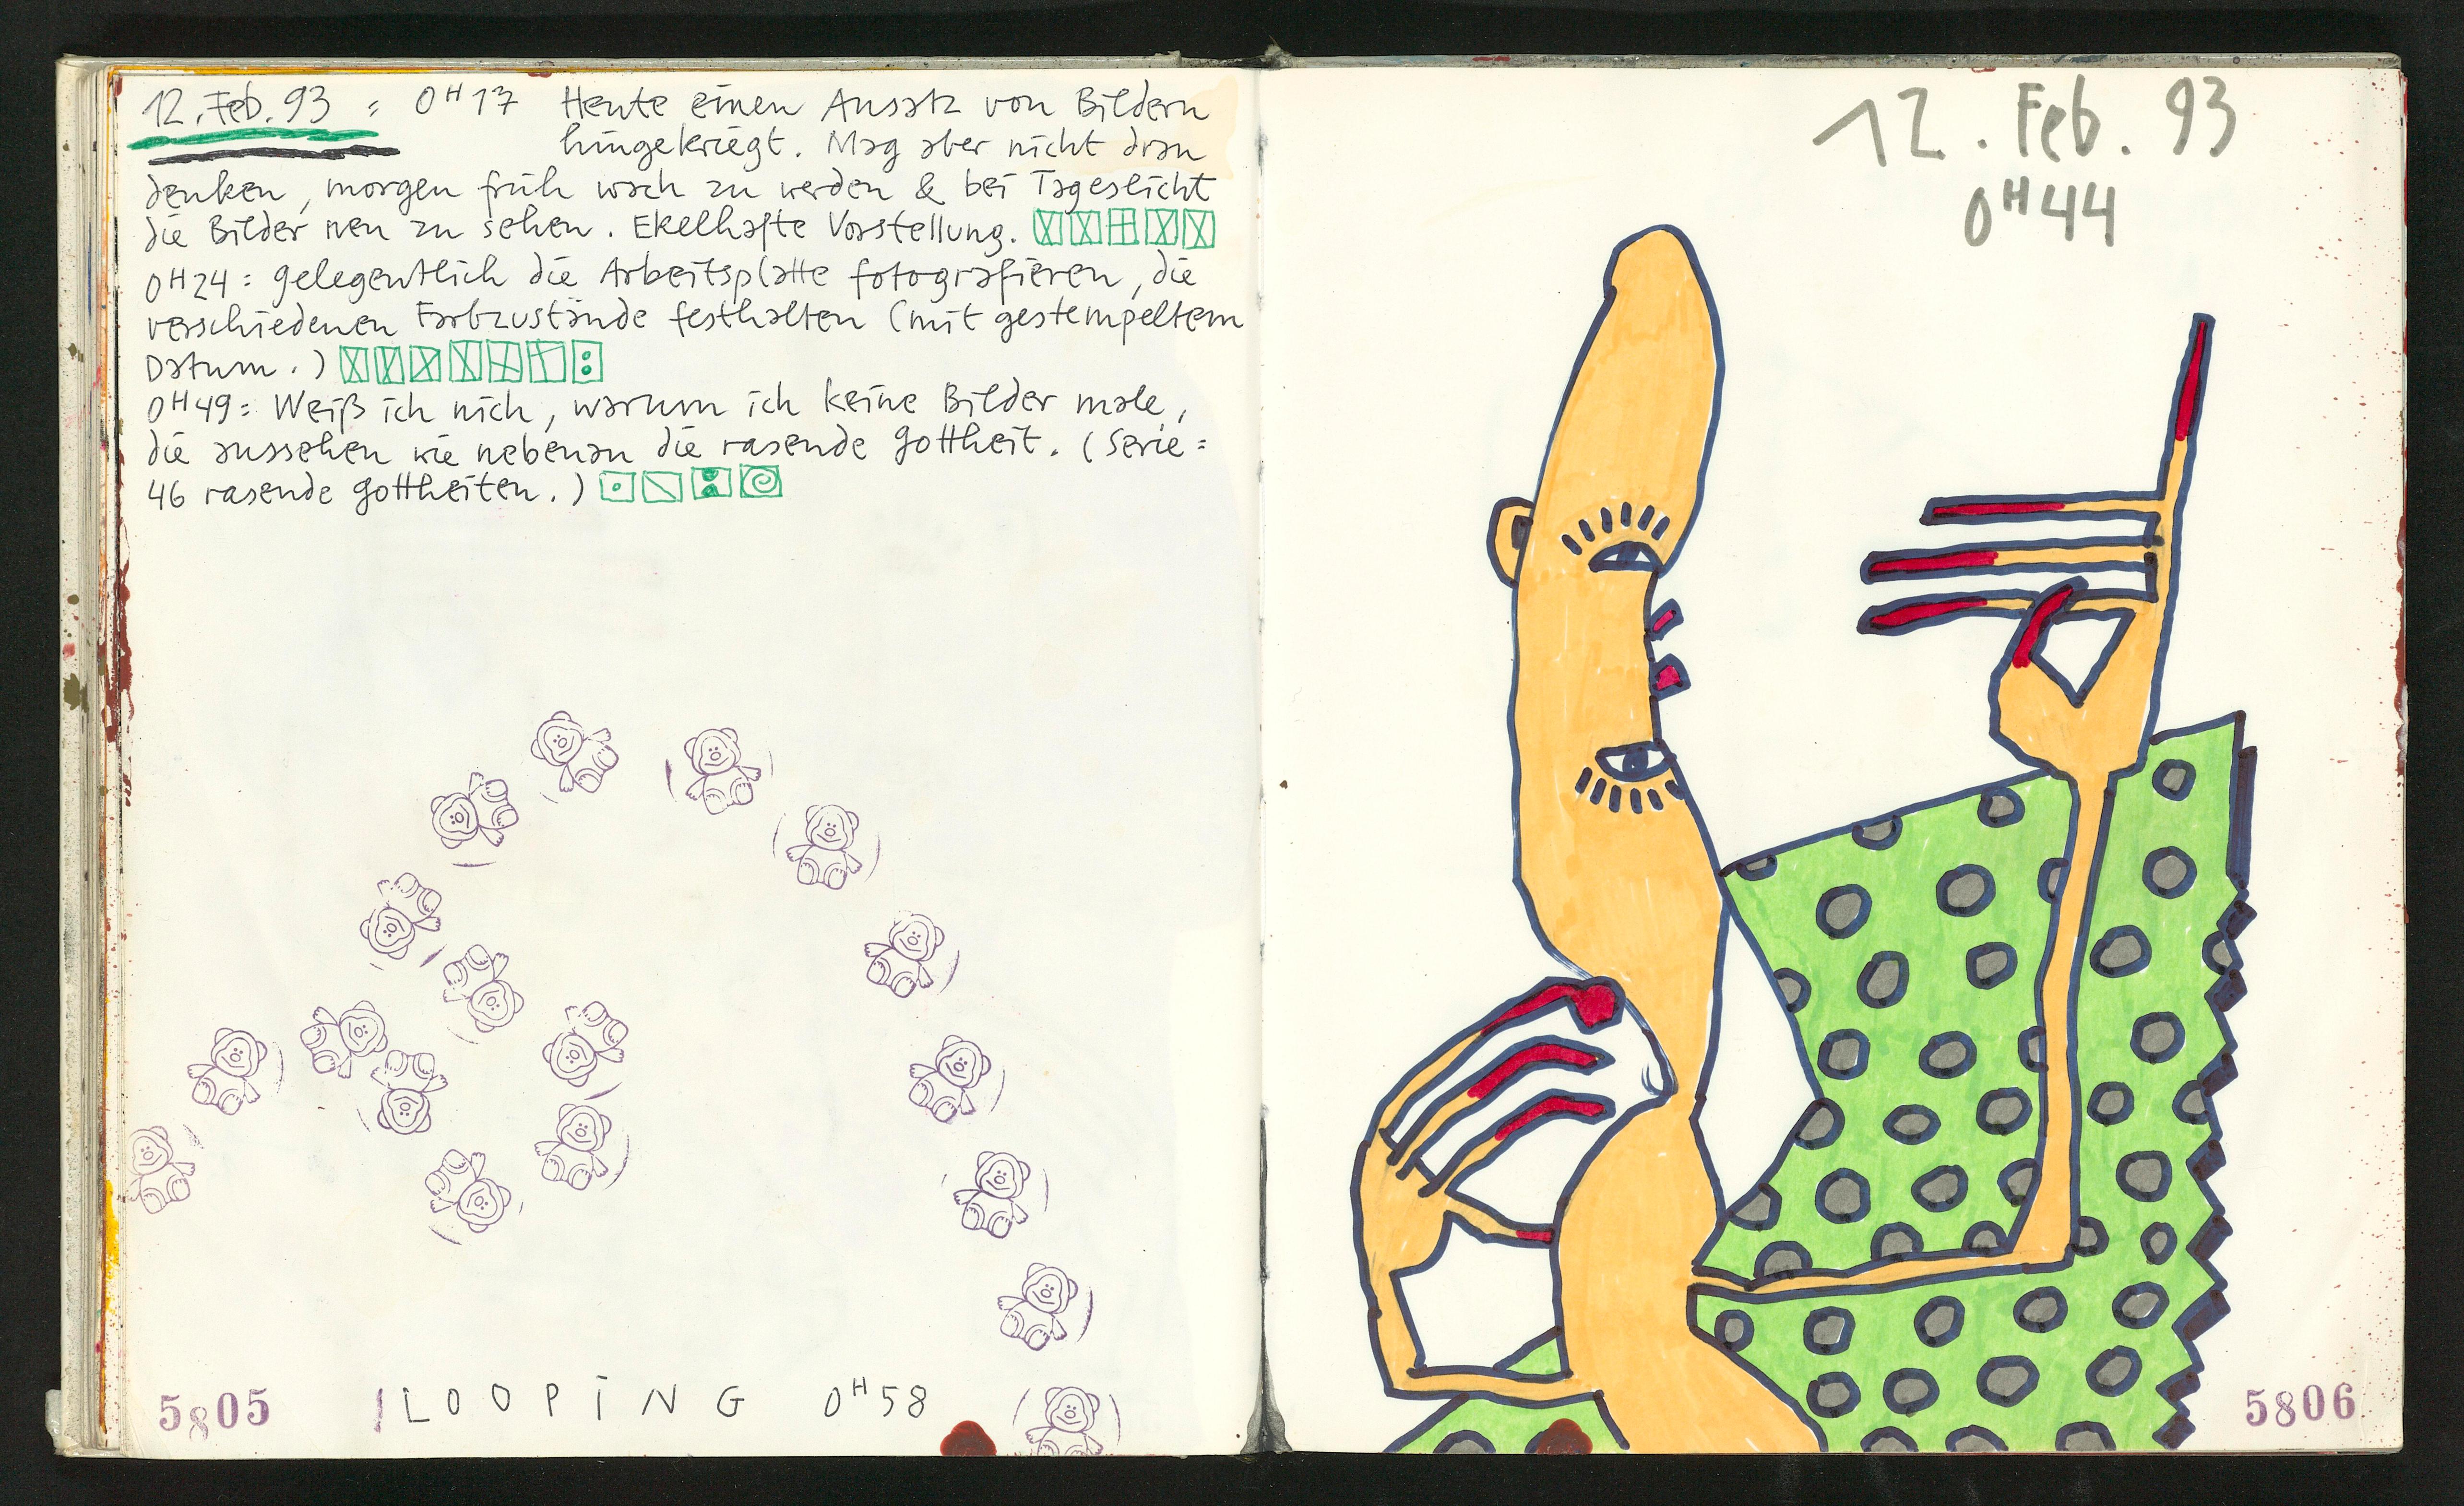 12. Feb. 93 : 0H17 Heute einen Ansatz von Bildern
hingekriegt. Mag aber nicht dran
denken, morgen früh wach zu werden & bei Tageslicht
die Bilder neu zu sehen. Ekelhafte Vorstellung.
0H24: Gelegentlich die Arbeitsplatte fotografieren, die
verschiedenen Farbzustände festhalten (mit gestempeltem
Datum.)
0H49: Weiß ich nich, warum ich keine Bilder male,
die aussehen wie nebenan die rasende Gottheit. (Serie:
46 rasende Gottheiten.)
LOOPING 0H58
5805
12. Feb. 93
0H44
5806